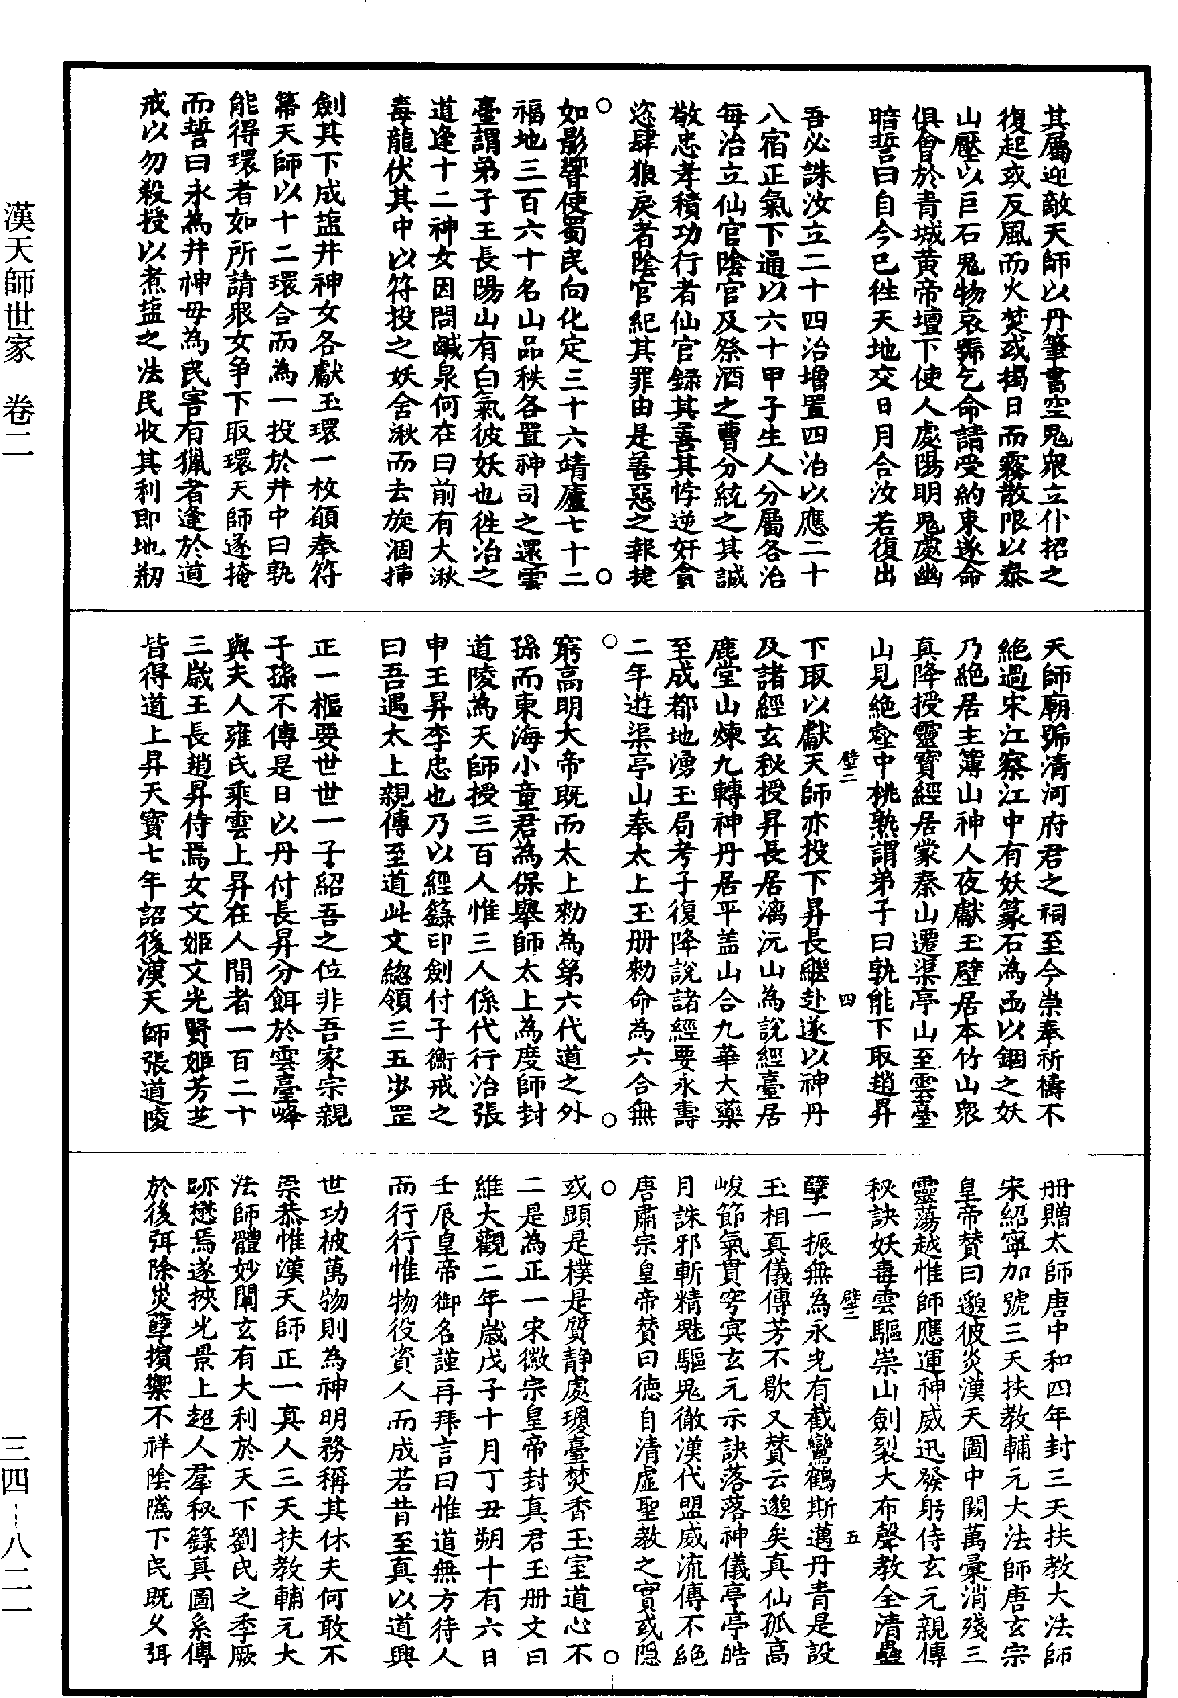 其屬迎敵天師以丹筆書空鬼眾立仆招之
復起或反風而火焚或揭日而霧散限以泰
山壓以巨石鬼物哀號乞命請受約束遂命
俱會於青城黃帝壇下使人處陽明鬼處幽
暗誓曰自今已徃天地交日月合汝若復出
吾必誅汝立二十四治增置四治以應二十
八宿正氣下通以六十甲子生人分屬各治
每治立仙官陰官及祭酒之曹分統之其誠
敬忠孝積功行者仙官録其善其悖逆奸貪
恣肆狼戾者陰官紀其罪由是善惡之報捷
如影響使蜀民向化定三十六靖廬七十二
福地三百六十名山品秩各置神司之還雲
臺謂弟子王長陽山有白氣彼妖也徃治之
道逢十二神女因問鹹泉何在曰前有大湫
毒龍伏其中以符投之妖舍湫而去旋涸揷
劍其下成塩井神女各獻玉環一枚願奉符
幕天師以十二環合而為一投於井中曰孰
能得環者如所請眾女争下取環天師遂掩
而誓曰永為井神毋為民害有獵者逢於道
戒以勿殺授以煮塩之法民收其利即地刱
天師廟號清河府君之祠至今崇奉祈禱不
絕過宋江察江中有妖篆石為函以錮之妖
乃絕居主簿山神人夜獻玉璧居本竹山眾
真降授靈寶經居蒙秦山遷渠亭山至雲臺
山見絕壑中桃熟謂弟子曰孰能下取趙昇
壁二 四
下取以獻天師亦投下昇長繼赴遂以神丹
及諸經玄秘授昇長居漓沅山為說經臺居
鹿堂山煉九轉神丹居平盖山合九華大藥
至成都地湧玉局考子復降說諸經要永壽
二年遊渠亭山奉太上玉册勑命為六合無
窮高明大帝既而太上勑為第六代道之外
孫而東海小童君為保舉師太上為度師封
道陵為天師授三百人惟三人係代行治張
申王昇李忠也乃以經籙印劍付子衡戒之
曰吾遇太上親傳至道此文總領三五步罡
正一樞要世世一子紹吾之位非吾家宗親
子孫不傳是日以丹付長昇分餌於雲臺峰
與夫人雍氏乘雲上昇在人間者一百二十
三歲王長趙昇侍焉女文姬文光賢姬芳芝
皆得道上昇天寶七年詔後漢天師張道陵
册贈太師唐中和四年封三天扶教大法師
宋紹寧加號三天扶教輔元大法師唐玄宗
皇帝贊曰邈彼炎漢天圖中闕萬彙消殘三
靈蕩越惟師應運神威迅發躬侍玄元親傳
秘訣妖毒雲驅崇山劍裂大布聲教全清蠱
壁二 五
孽一振無為永光有截鸞鶴斯邁丹青是設
玉相真儀傳芳不歇又贊云邈矣真仙孤高
峻節氣貫穹冥玄元示訣落落神儀亭亭皓
月誅邪斬精魅驅鬼徹漢代盟威流傳不絕
唐肅宗皇帝贊曰德自清虛聖教之實或隱
或顯是樸是質靜處瓊臺焚香玉室道心不
二是為正一宋徽宗皇帝封真君玉册文曰
維大觀二年歲戊子十月丁丑朔十有六日
壬辰皇帝御名謹再拜言曰惟道無方待人
而行行惟物役資人而成若昔至真以道興
世功被萬物則為神明務稱其休夫何敢不
崇恭惟漢天師正一真人三天扶教輔元大
法師體妙闡玄有大利於天下劉民之季厥
跡懋焉遂挾光景上超人羣秘籙真圖系傳
於後弭除災孽擯禦不祥陰隲下民既乂弭
漢天師世家 卷二
三四--八二一